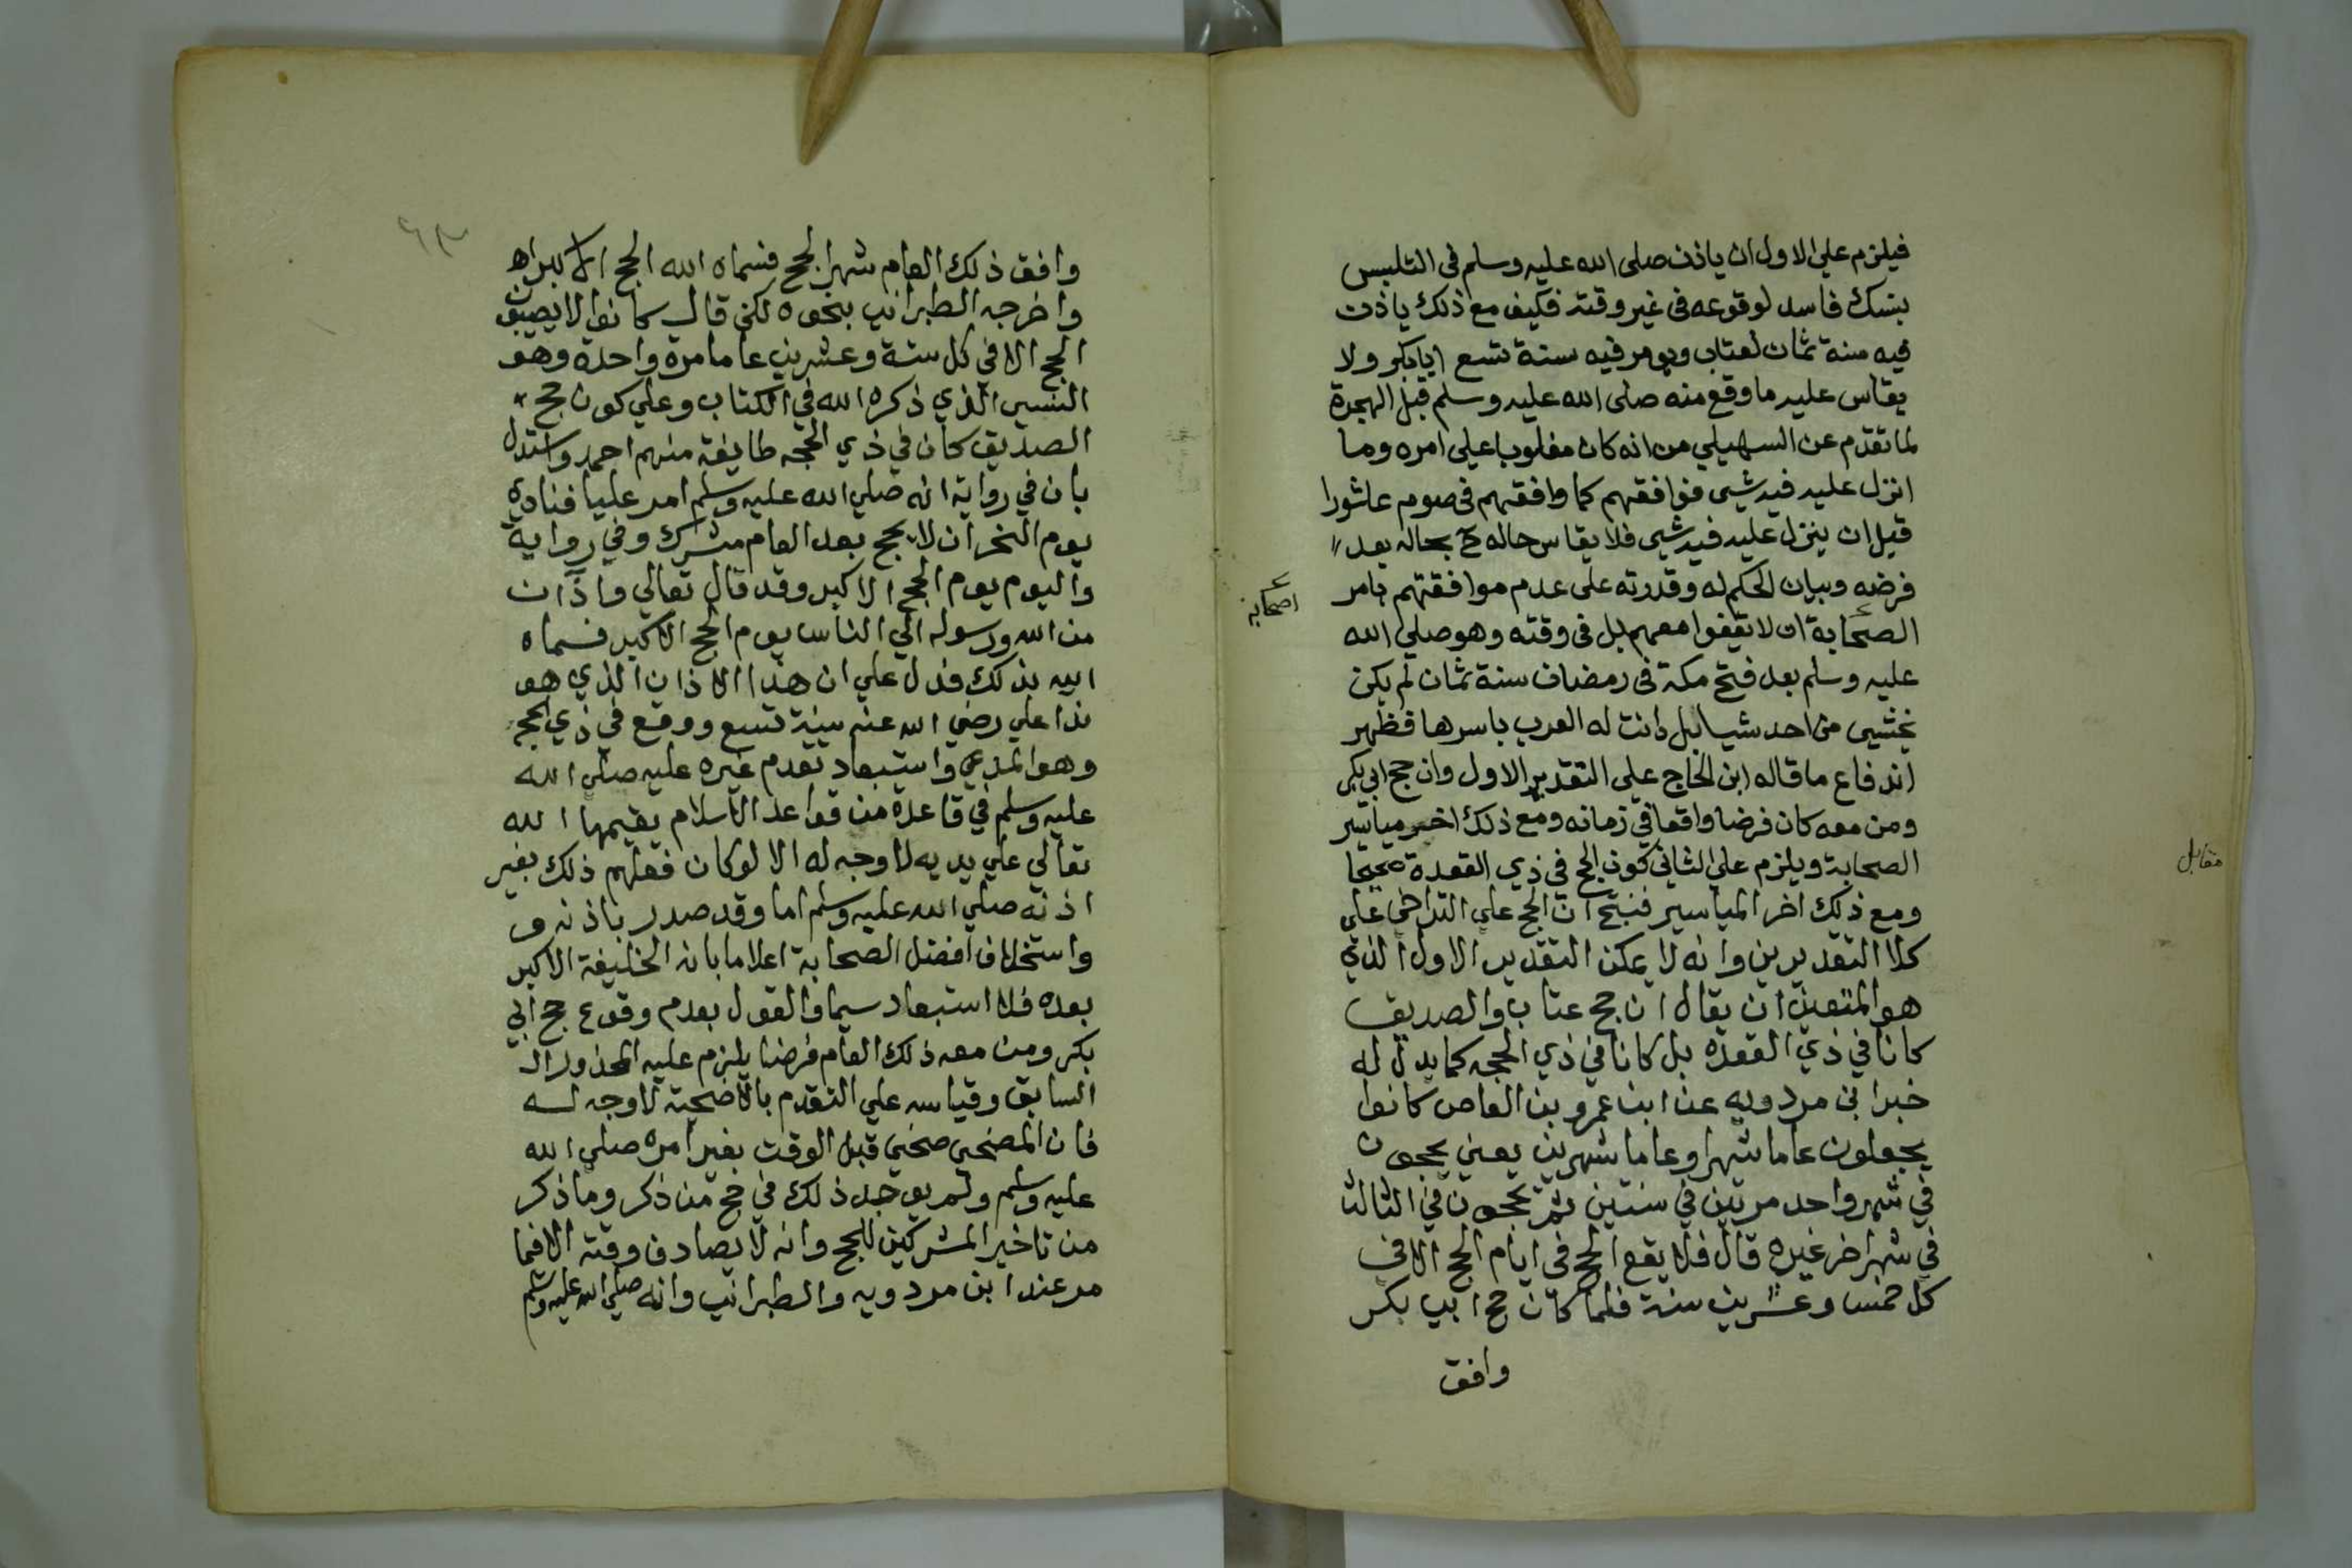 فيلزم على الاول ان ياذن صلى الله عليه وسلم في التلبس
بنسك فاسد لوقوعه في غير وقته فكيف مع ذلك ياذن
فيه سنة ثمان لعتاب ويومر فيه سنة تسع ابابكر ولا
يقاس عليه ما وقع منه صلى الله عليه وسلم قبل الهجرة
لما تقدم عن السهيلي من انه كان مغلوبا على امره وما
انزل عليه فيه شيى فوافقهم كما وافقهم في صوم عاشورا
قبل ان ينزل عليه فيه شيى فلا يقاس حاله ح بحاله بعد
فرضه وبيان الحكم له وقدرته على عدم موافقتهم بامر
الصحابة ان لا يقفوا معهم بل في وقته وهو صلى الله
اصحابه
عليه وسلم بعد فتح مكة في رمضان سنة ثمان لم يكن
يخشى من احد شيا بل دانت له العرب باسرها فظهر
اندفاع ما قاله ابن الحاج على التقدير الاول وان حج ابي بكر
ومن معه كان فرضا واقعا في زمانه ومع ذلك اخر مياسير
الصحابة ويلزم على الثاني كون الحج في ذي القعدة صحيحا
مقابل
ومع ذلك اخر المياسير فنتج ان الحج على التراخي على
كلا التقديرين وانه لا يمكن التقدير الاول الذي
هو المتعين ان يقال ان حج عتاب والصديق
كانا في ذي القعده بل كانا في ذي الحجه كما يدل له
خبر ابن مردويه عن ابن عمرو بن العاص كانوا
يجعلون عاما شهرا وعاما شهرين يعني يحجون
في شهر واحد مرتين في سنتين ثم يحجون في الثالث
في شهر اخر غيره قال فلا يقع الحج في ايام الحج الا في
كل خمس وعشرين سنة فلما كان حج ابي بكر
وافق
٦٣
وافق ذلك العام شهر الحج فسماه الله الحج الاكبر اه
واخرجه الطبراني بنحوه لكن قال كانوا لا يصيبون
الحج الا في كل ستة وعشرين عاما مرة واحدة وهو
النسيى الذي ذكره الله في الكتاب وعلي كون حج
الصديق كان في ذي الحجه طايفة منهم احمد واستدل
بان في رواية انه صلي الله عليه وسلم امر عليا فنادي
يوم النحر ان لا يحج بعد العام مشرك وفي رواية
واليوم يوم الحج الاكبر وقد قال تعالي واذان
من الله ورسوله الي الناس يوم الحج الاكبر فسماه
الله بذلك فدل علي ان هذا الاذان الذي هو
ندا علي رضي الله عنه سنة تسع ووقع في ذي الحجه
وهو المدعي واستبعاد تقدم غيره عليه صلي الله
عليه وسلم في قاعدة من قواعد الاسلام يقيمها الله
تعالي علي يديه لا وجه له الا لو كان فعلهم ذلك بغير
اذنه صلي الله عليه وسلم اما وقد صدر باذنه و
واستخلاف افضل الصحابة اعلاما بانه الخليفة الاكبر
بعده فلا استبعاد سيما والقول بعدم وقوع حج ابي
بكر ومن معه ذلك العام فرضا يلزم عليه المحذور ال
السابق وقياسه علي التقدم بالاضحية لا وجه له
فان المضحي ضحي قبل الوقت بغير امره صلي الله
عليه وسلم ولم يوجد ذلك في حج من ذكر وما ذكر
من تاخير المشركين للحج وانه لا يصادف وقته الا فيما
مر عند ابن مردويه والطبراني وانه صلي الله عليه وسلم